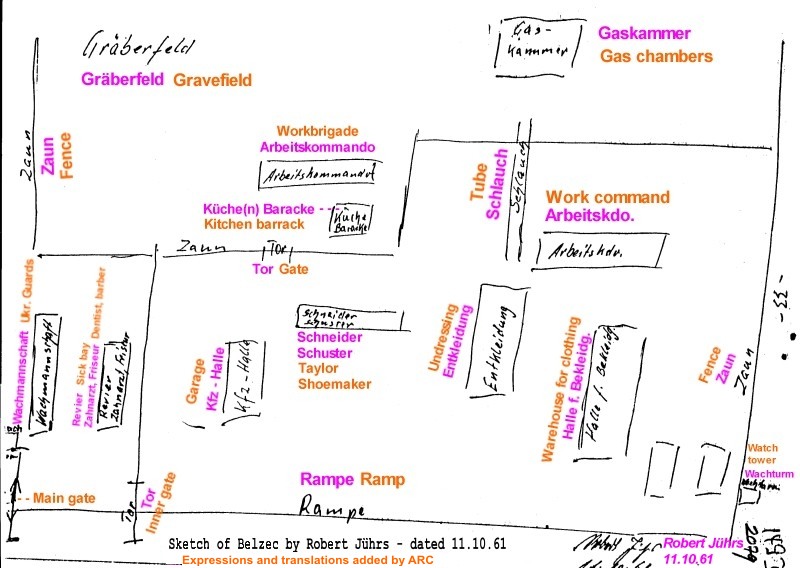 Gräberfeld
Gräberfeld Gravefield
Gas-
Kammer
Gaskammer
Gas chambers
Zaun
Zaun
Fence
Workbrigade
Arbeitskommando
Arbeitskommando
Küche(n) Baracke ---
Kitchen barrack
Küche
Baracke
Zaun
Tor
Tor Gate
Tube
Schlauch
Schlauch
Work command
Arbeitskdo.
Arbeitskdo.
Wachmannschaft Ukr. Guards
Wachmannschaft
Revier Sick bay
Zahnarzt, Friseur Dentist, barber
Revier
Zahnarzt, Friseur
Garage
Kfz - Halle
Kfz-Halle
Schneider
Schuster
Schneider
Schuster
Taylor
Shoemaker
Undressing
Entkleidung
Entkleidung
Warehouse for clothing
Halle f. Bekleidg.
Halle f. Bekleidg.
Fence
Zaun
Zaun
- 33 -
Watch
tower
Wachturm
Wachturm
--- Main gate
Tor
Inner gate
Tor
Rampe Ramp
Rampe
Sketch of Belzec by Robert Jührs - dated 11.10.61
Expressions and translations added by ARC
Robert Jührs
11.10.61